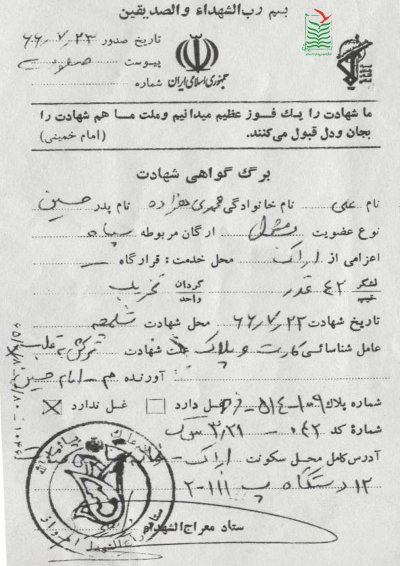 بسم رب الشهداء والصديقین
تاریخ صدور ۶۶/۷/۲۳
پیوست
شماره
جمهوری اسلامی ایران
ما شهادت را یك فوز عظیم میدانیم وملت مـا هم شهادت را
بجان ودل قبول می‌کنند. (امام خمینی)
برگ گواهی شهادت
نام علی نام خانوادگی محمدی زاده نام پدر حسین
نوع عضویت مشمول ارگان مربوطه سپاه
اعزامی از اراک محل خدمت: قرارگاه
لشگر تیپ ۴۲ قدر گردان واحد تخریب
تاریخ شهادت ۶۶/۷/۲۲ محل شهادت شلمچه
عامل شناسائی کارت و پلاک علت شهادت ترکش به قلب
آورنده هـ - امام حسین
شماره پلاك غسل دارد غسل ندارد
شمارهٔ کد
آدرس کامل محـل سکونت اراک
۱۲ دستگاه پ ۱۱۱-۲
ستاد معراج الشهداء